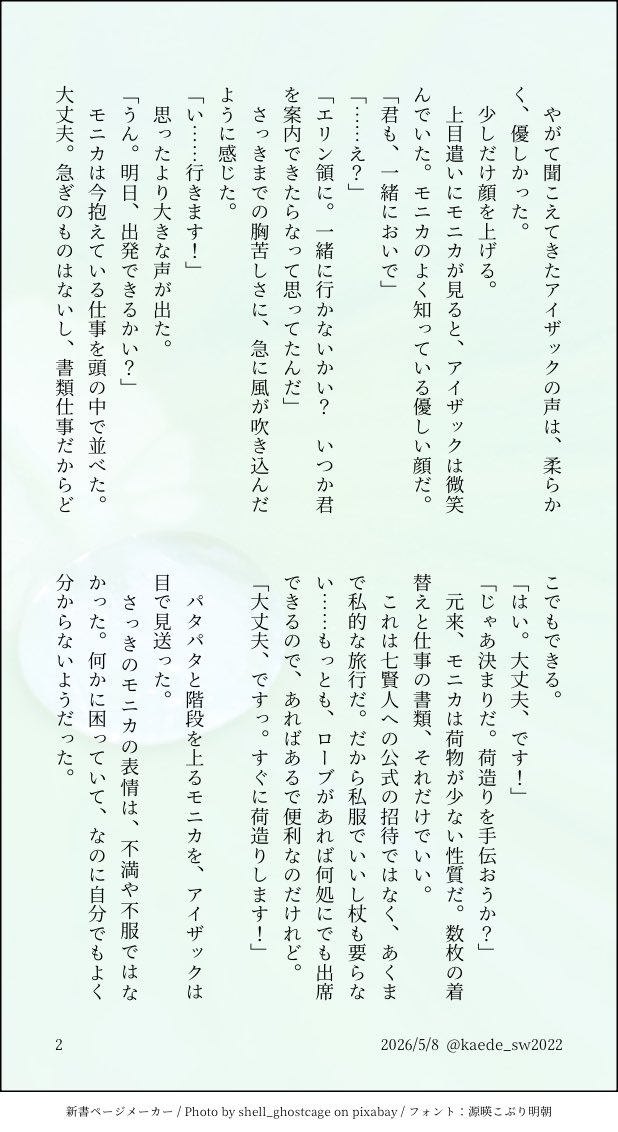 やがて聞こえてきたアイザックの声は、柔らか
く、優しかった。
　少しだけ顔を上げる。
　上目遣いにモニカが見ると、アイザックは微笑
んでいた。モニカのよく知っている優しい顔だ。
「君も、一緒においで」
「……え？」
「エリン領に。一緒に行かないかい？　いつか君
を案内できたらなって思ってたんだ」
　さっきまでの胸苦しさに、急に風が吹き込んだ
ように感じた。
「い……行きます！」
　思ったより大きな声が出た。
「うん。明日、出発できるかい？」
　モニカは今抱えている仕事を頭の中で並べた。
大丈夫。急ぎのものはないし、書類仕事だからど
こでもできる。
「はい。大丈夫、です！」
「じゃあ決まりだ。荷造りを手伝おうか？」
　元来、モニカは荷物が少ない性質だ。数枚の着
替えと仕事の書類、それだけでいい。
　これは七賢人への公式の招待ではなく、あくま
で私的な旅行だ。だから私服でいいし杖も要らな
い……もっとも、ローブがあれば何処にでも出席
できるので、あればあるで便利なのだけれど。
「大丈夫、ですっ。すぐに荷造りします！」
　パタパタと階段を上るモニカを、アイザックは
目で見送った。
　さっきのモニカの表情は、不満や不服ではな
かった。何かに困っていて、なのに自分でもよく
分からないようだった。
2
2026/5/8 @kaede_sw2022
新書ページメーカー / Photo by shell_ghostcage on pixabay / フォント：源暎こぶり明朝